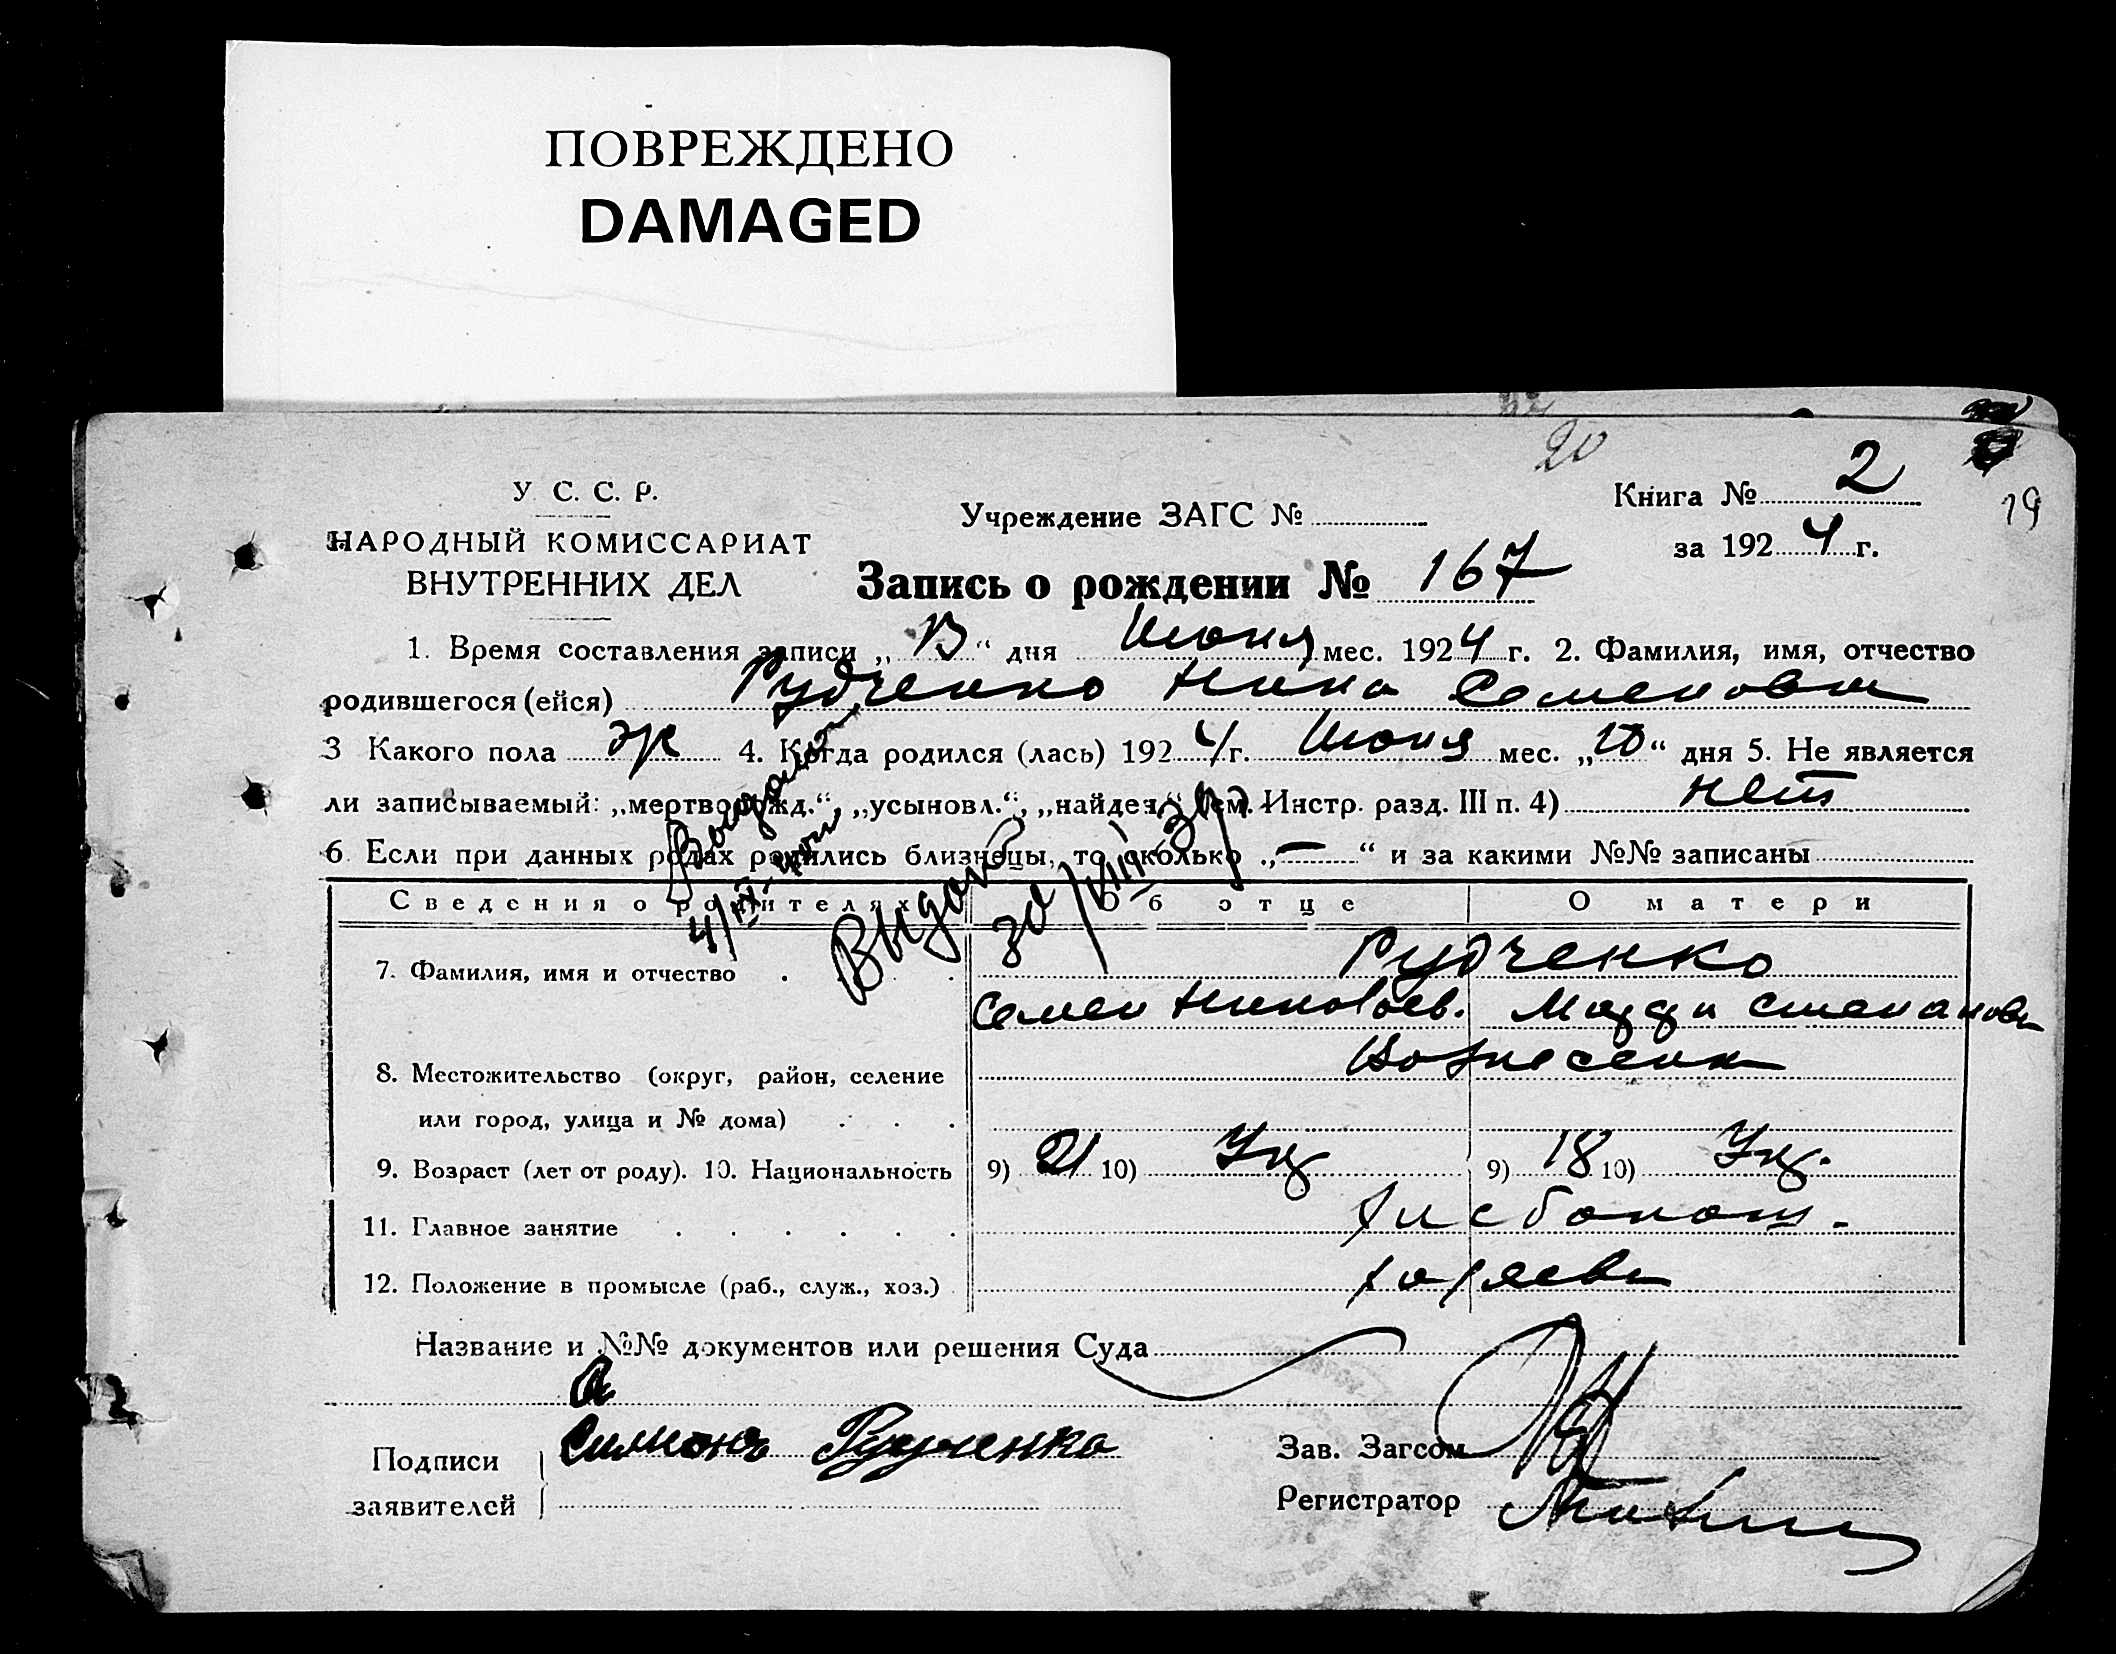 ПОВРЕЖДЕНО
DAMAGED
20
У. С. С. Р.
НАРОДНЫЙ КОМИССАРИАТ
ВНУТРЕННИХ ДЕЛ
Учреждение ЗАГС №
Книга № 2
19
за 1924 г.
Запись о рождении № 167
1. Время составления записи „13“ дня Июня мес. 1924 г. 2. Фамилия, имя, отчество
родившегося (ейся) Рудченко Нина Семеновна
3 Какого пола ж 4. Когда родился (лась) 1924 г. Июня мес. „10“ дня 5. Не является
ли записываемый: „мертворожд.“, „усыновл.“, „найден.“ (см. Инстр. разд. III п. 4) нет
6. Если при данных родах родились близнецы, то сколько „—“ и за какими №№ записаны
Выдано
Сведения о родителях Об отце О матери
7. Фамилия, имя и отчество Рудченко
Семен Николаев. Мария Степанов
8. Местожительство (округ, район, селение Вознесенка
или город, улица и № дома)
9. Возраст (лет от роду). 10. Национальность 9) 21 10) Укр 9) 18 10) Укр.
11. Главное занятие Хлебопаш.
12. Положение в промысле (раб., служ., хоз.) хозяева
Название и №№ документов или решения Суда
Подписи заявителей Рудченко
Зав. Загсом
Регистратор